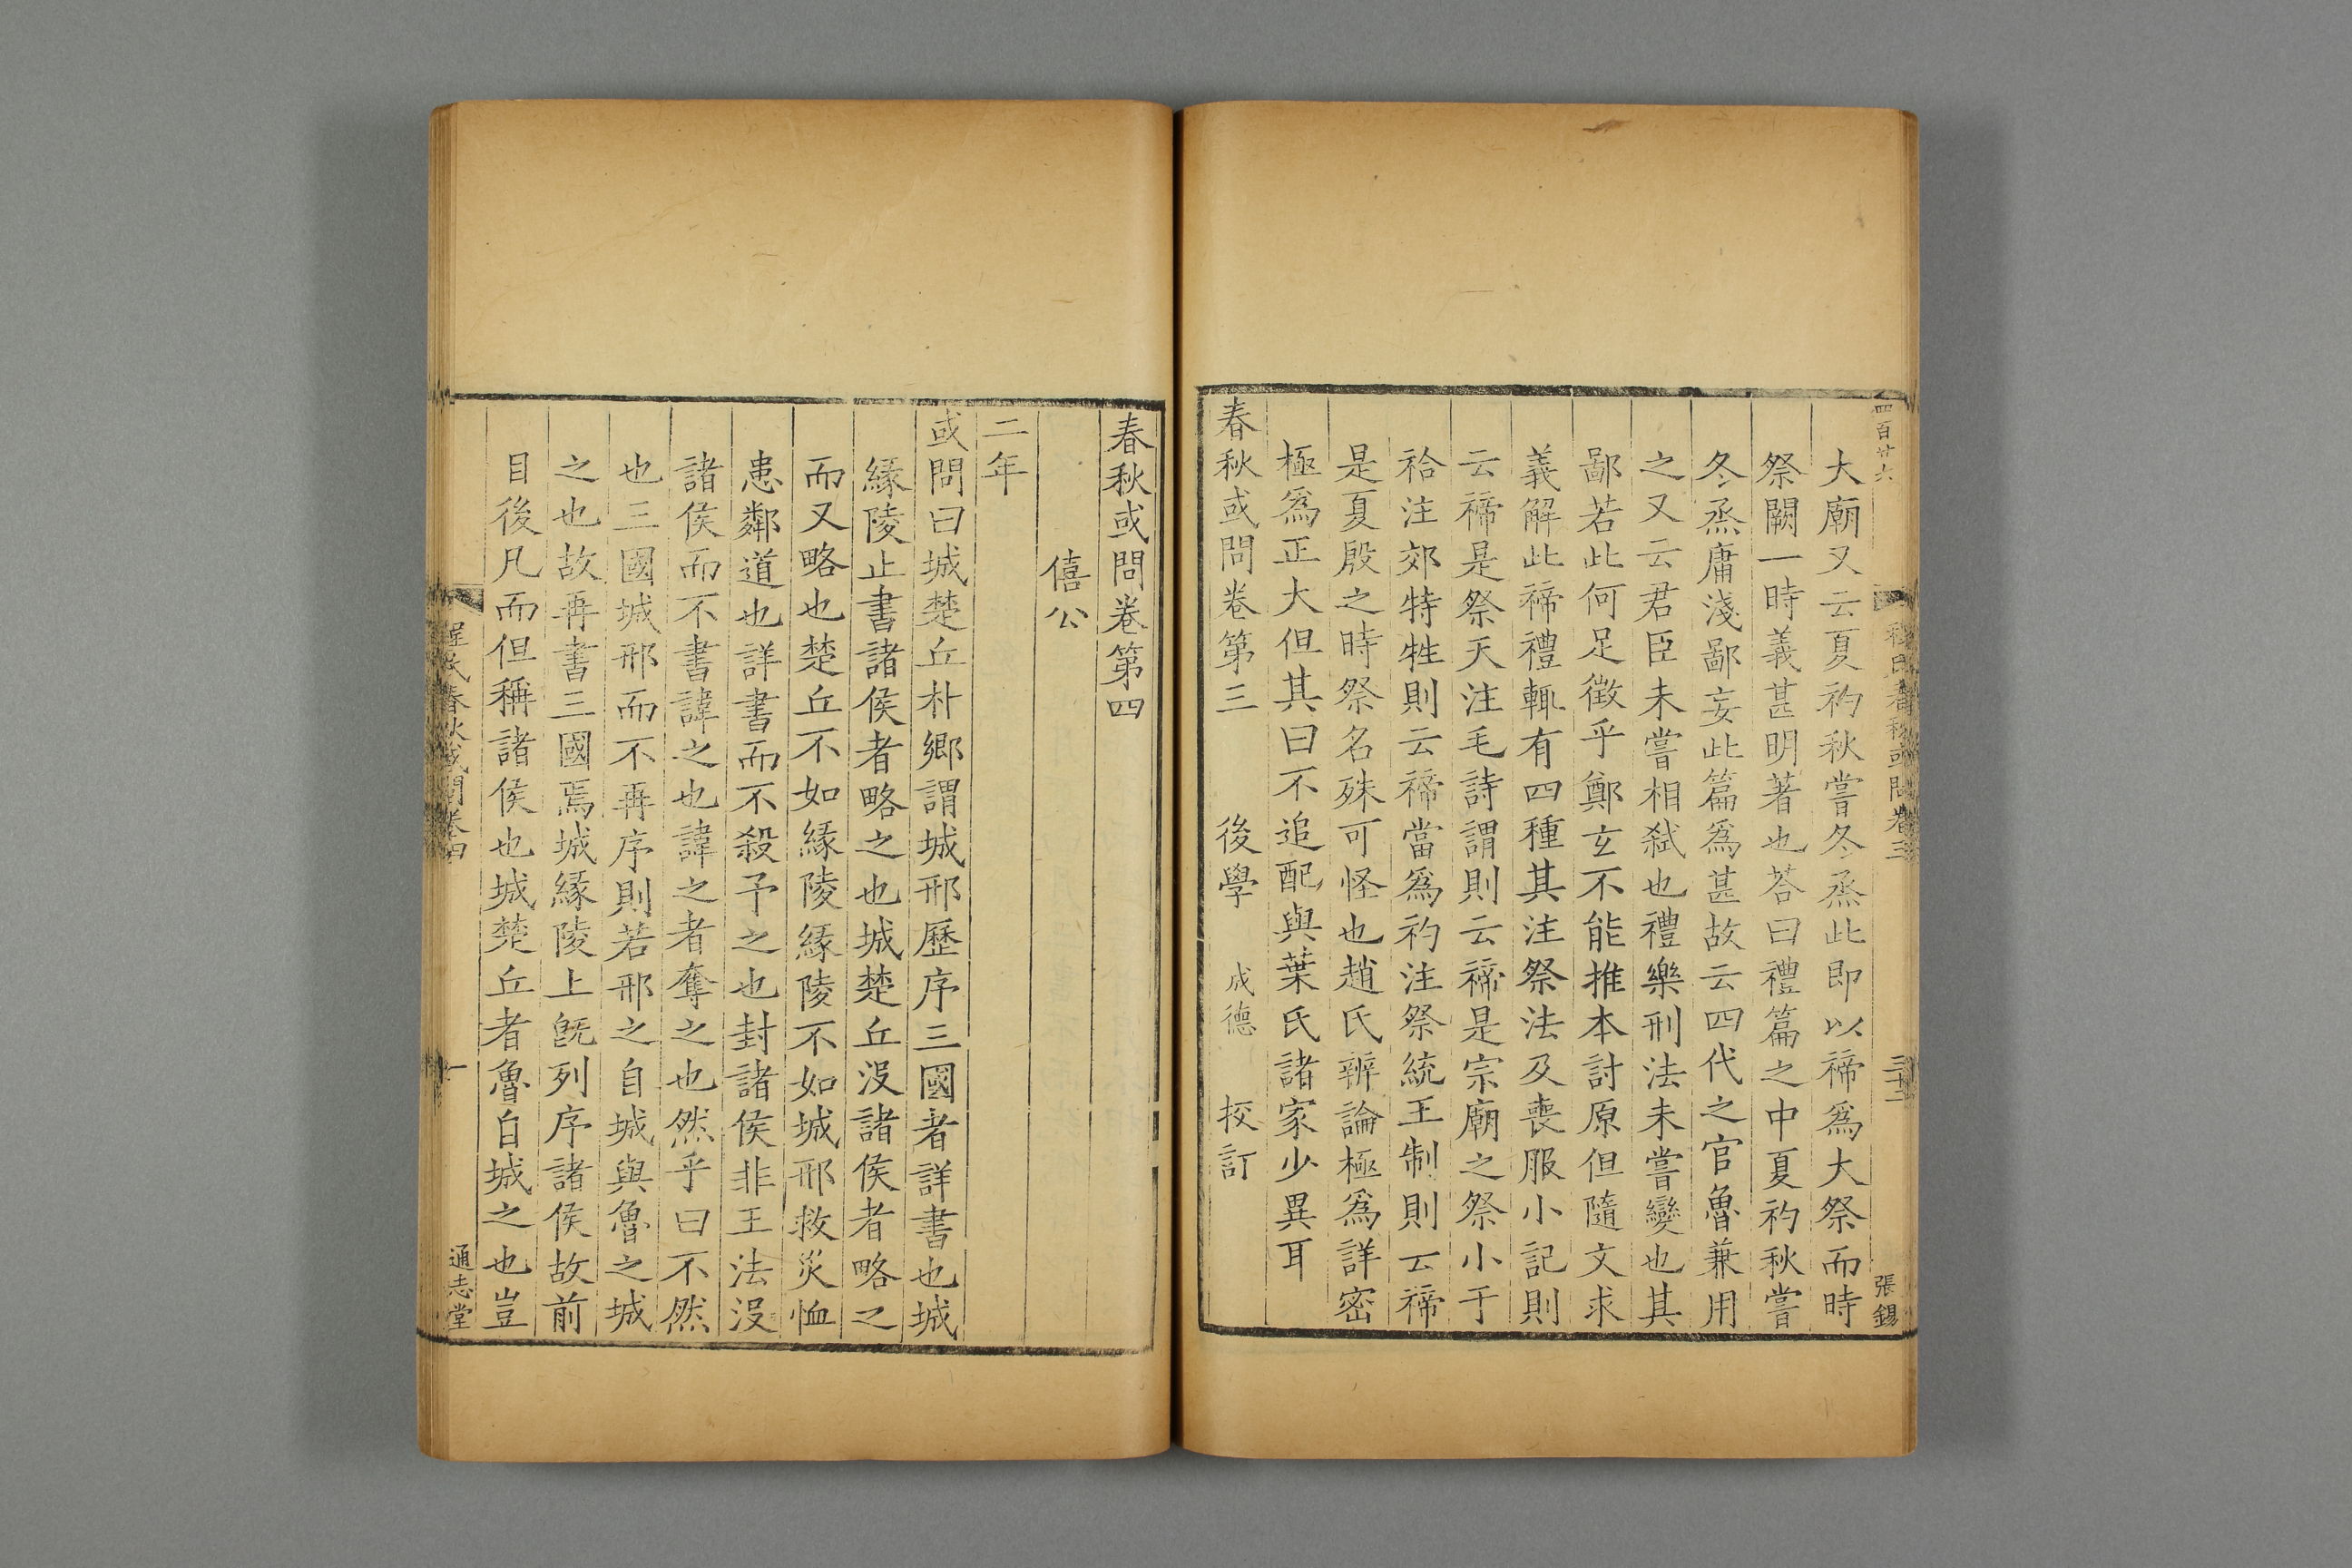 四百廿六
張錫
大廟又云夏礿秋嘗冬烝此即以禘爲大祭而時
祭闕一時義甚明著也荅曰禮篇之中夏礿秋嘗
冬烝庸淺鄙妄此篇爲甚故云四代之官魯兼用
之又云君臣未嘗相弑也禮樂刑法未嘗變也其
鄙若此何足徵乎鄭玄不能推本討原但隨文求
義解此禘禮輒有四種其注祭法及喪服小記則
云禘是祭天注毛詩謂則云禘是宗廟之祭小于
祫注郊特牲則云禘當爲礿注祭統王制則云禘
是夏殷之時祭名殊可怪也趙氏辨論極爲詳密
極爲正大但其曰不追配與葉氏諸家少異耳
春秋或問卷第三 後學 成德 挍訂
春秋或問卷第四
僖公
二年
或問曰城楚丘朴鄉謂城邢歷序三國者詳書也城
緣陵止書諸侯者略之也城楚丘沒諸侯者略之
而又略也楚丘不如緣陵緣陵不如城邢救災恤
患鄰道也詳書而不殺予之也封諸侯非王法沒
諸侯而不書諱之也諱之者奪之也然乎曰不然
也三國城邢而不再序則若邢之自城與魯之城
之也故再書三國焉城緣陵上旣列序諸侯故前
目後凡而但稱諸侯也城楚丘者魯自城之也豈
春秋或問卷四
一
通志堂